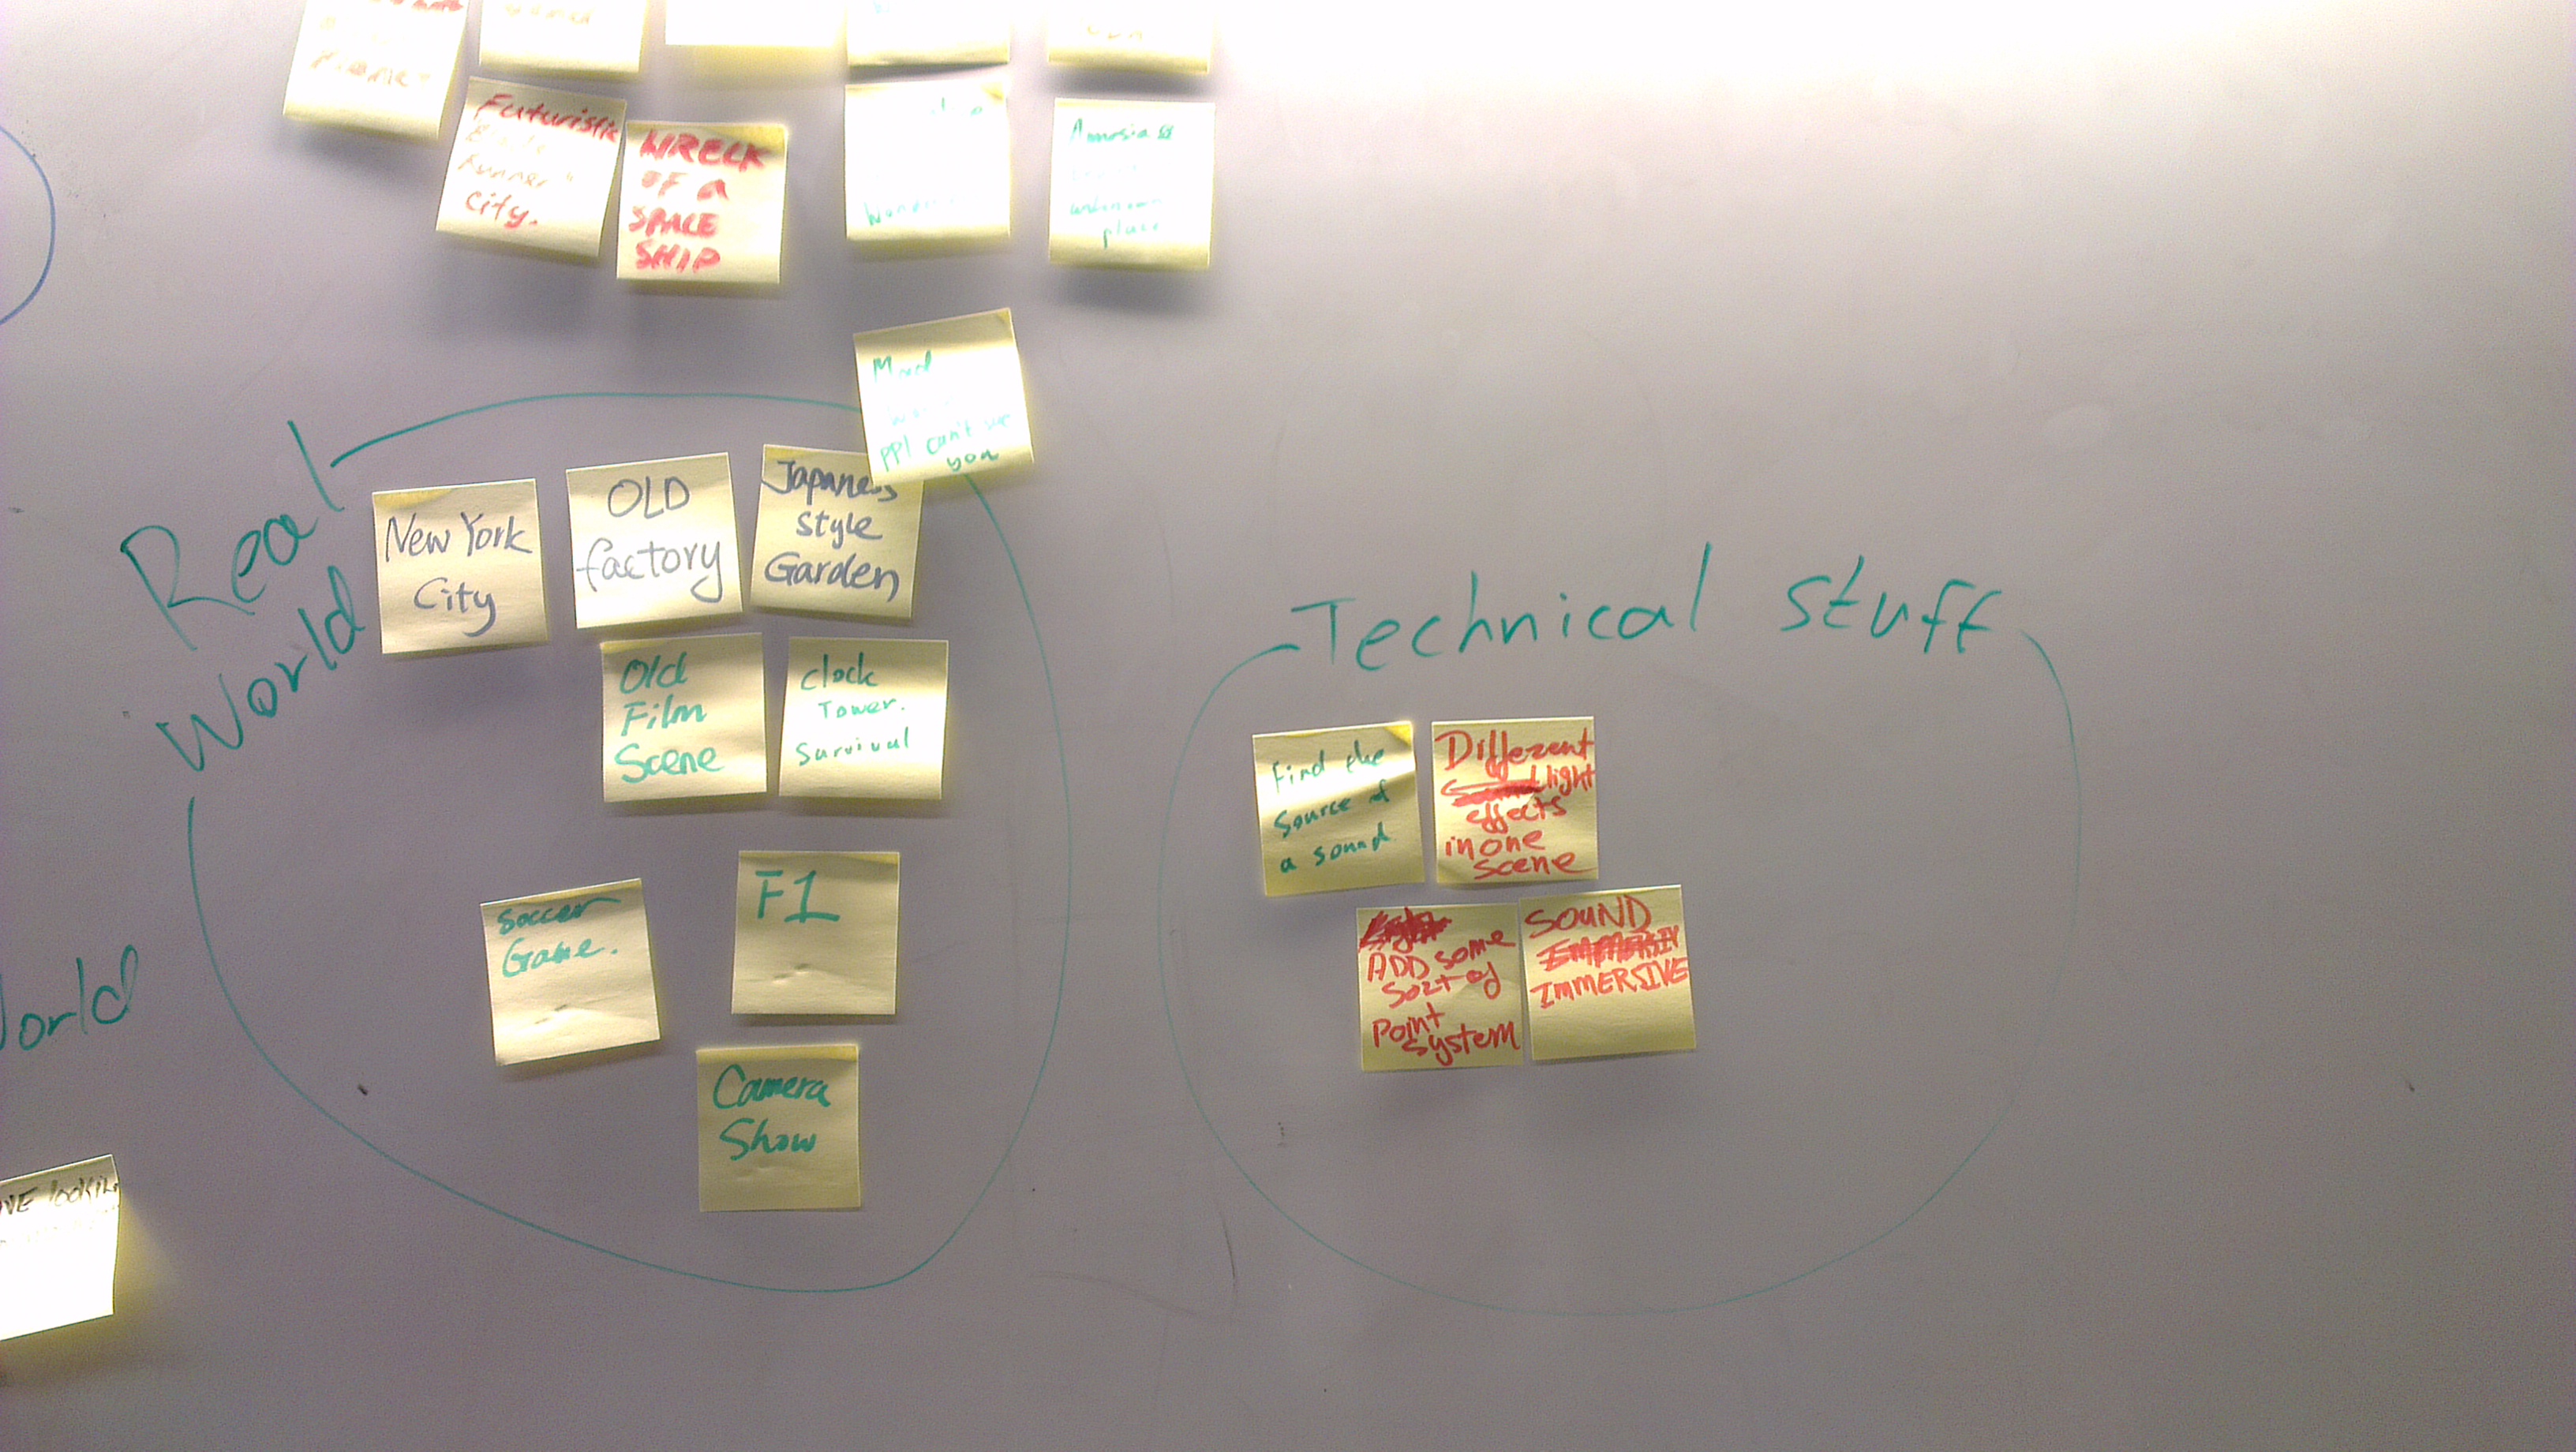 Phone"
Futuristic
Blade
Runner"
City.
WRECK
OF A
SPACE
SHIP
Amnesia
unknown
place
Mad
world
ppl can't see
you
Real
World
New York
City
OLD
factory
Japanes
Style
Garden
Old
Film
Scene
Clock
Tower.
Survival
Soccer
Game.
F1
Camera
Show
Technical stuff
Find the
source of
a sound.
Different
light
effects
in one
scene
ADD some
sort of
point
system
SOUND
IMMERSIVE
orld
VE lookin